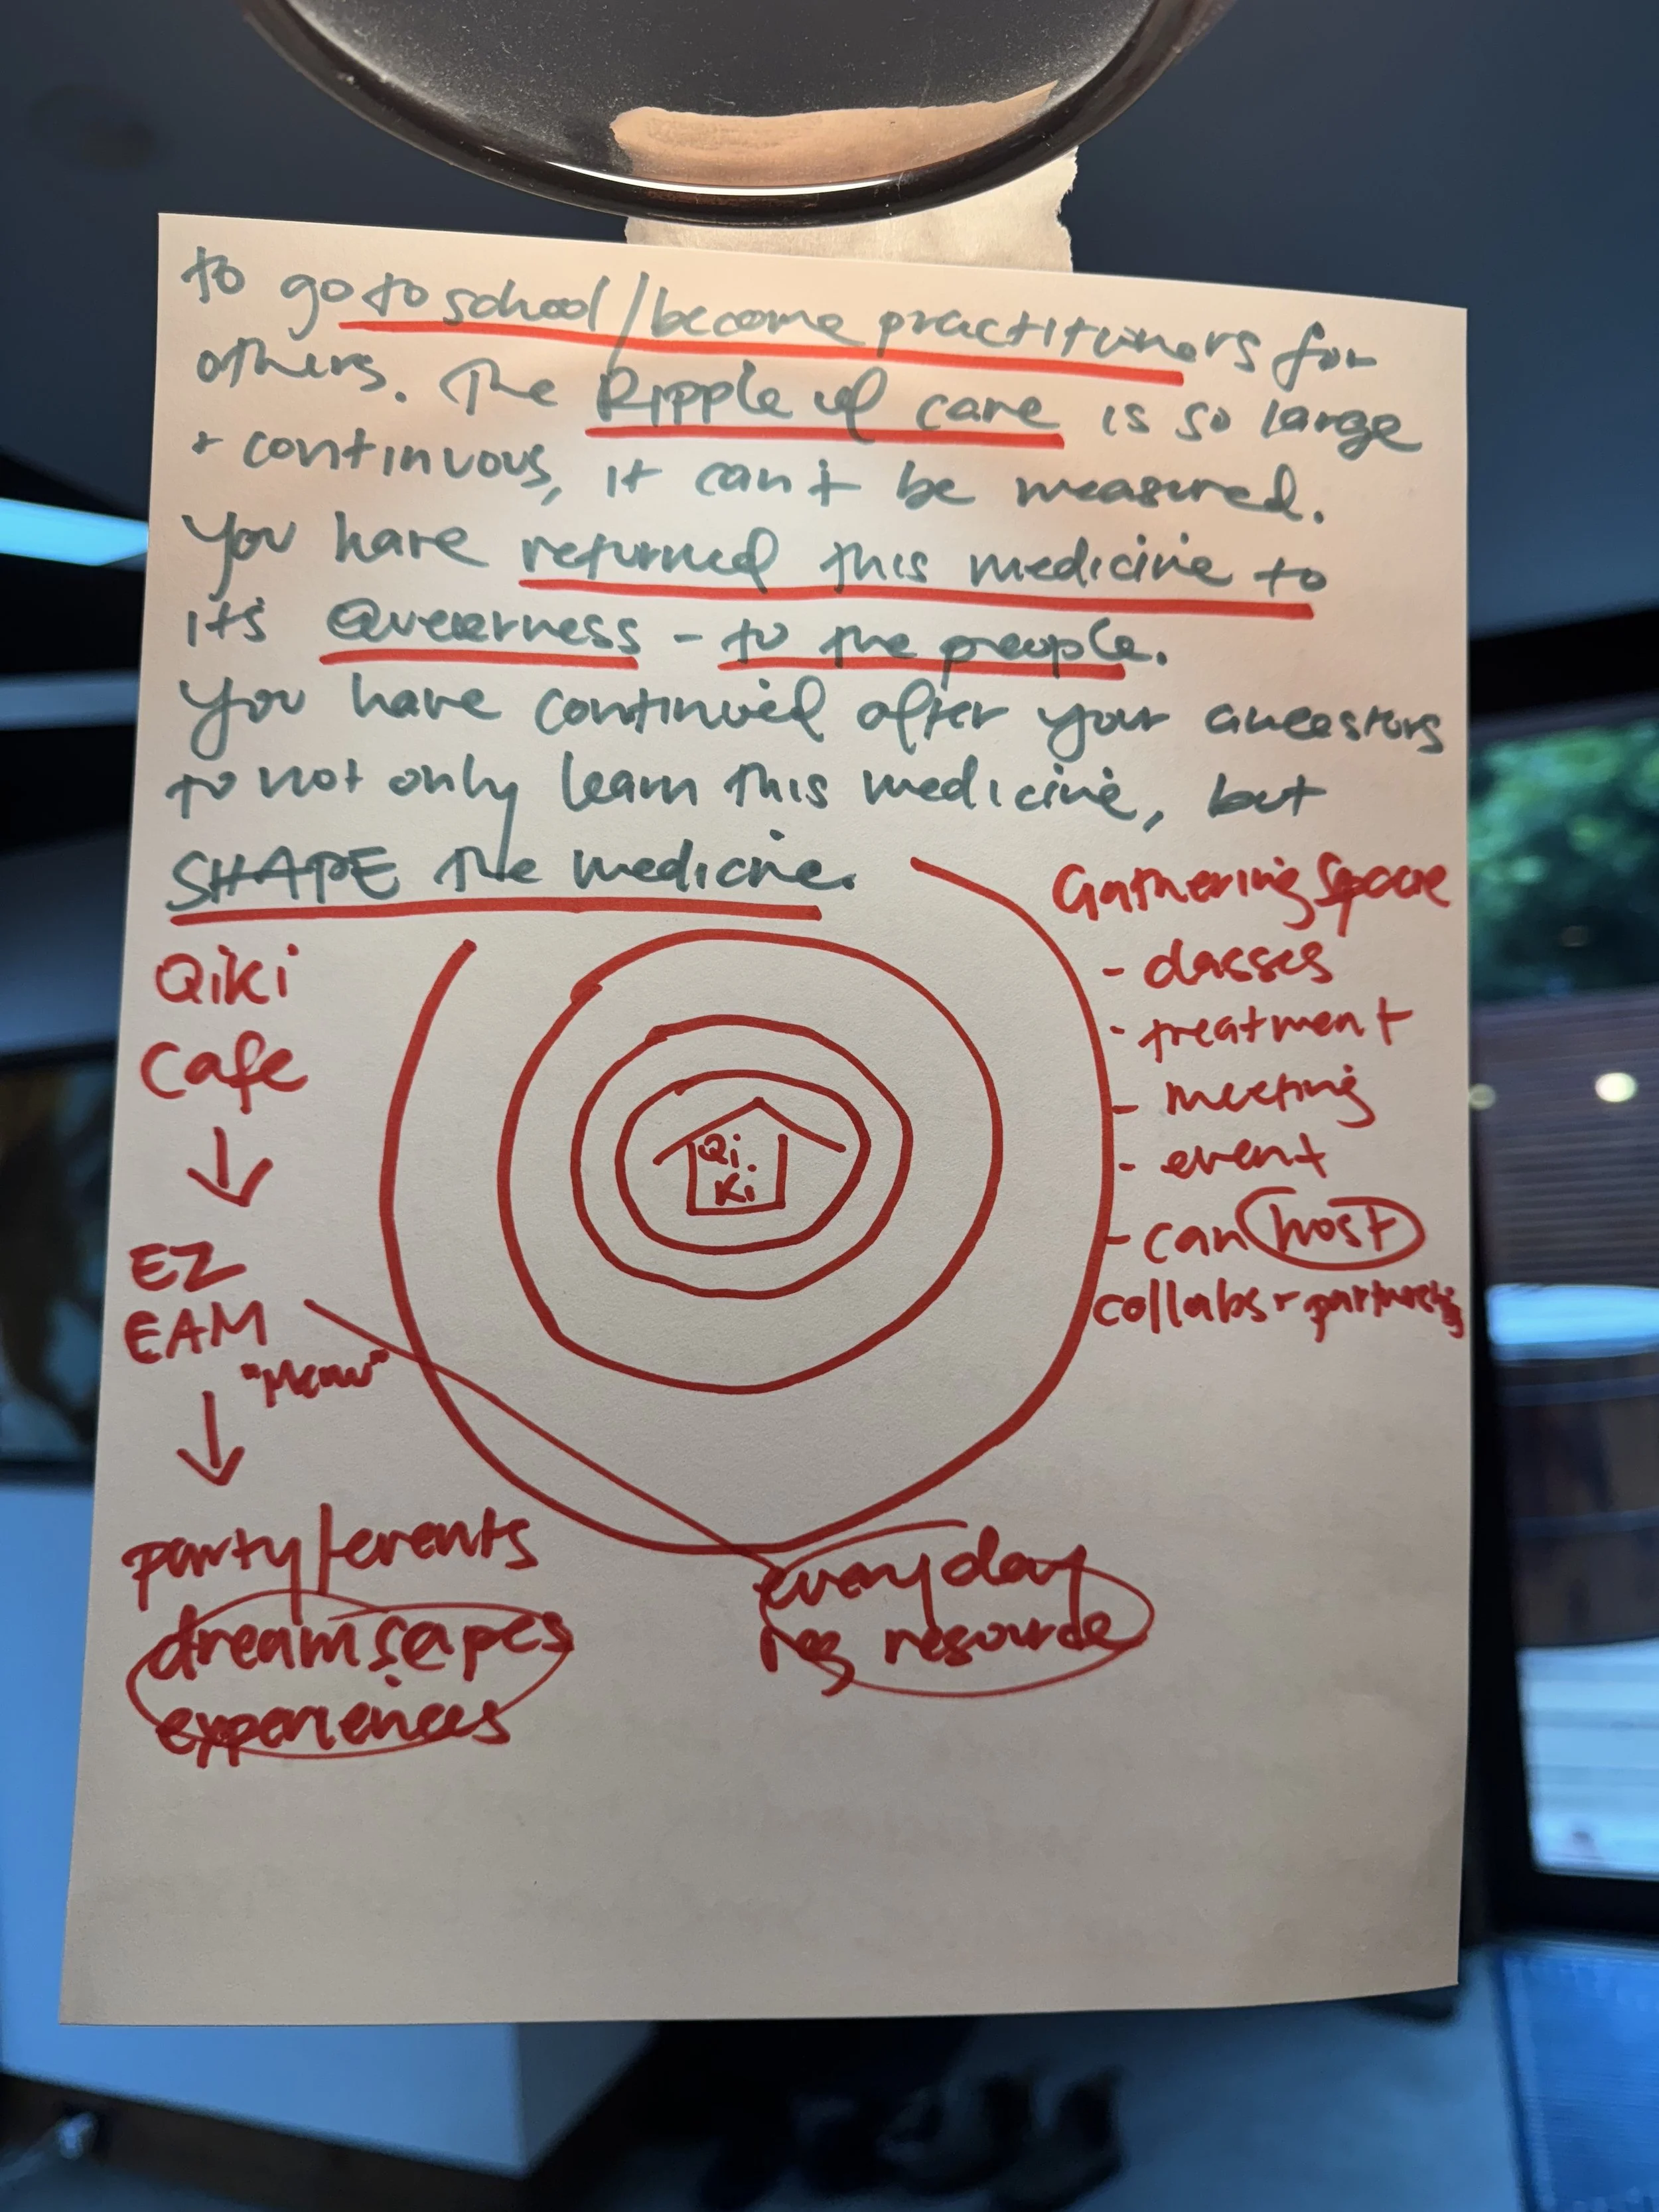 to go to school/become practitioners for
others. The Ripple of care is so large
+ continuous, it can't be measured.
You have returned this medicine to
it's Queerness - to the people.
You have continued after your ancestors
to not only learn this medicine, but
SHAPE the medicine.
Qiki
Cafe
↓
EZ
EAM
"Meow"
↓
party/events
dreamscapes
experiences
Qi.
Ki
everyday
reg resource
Gathering Space
- classes
- treatment
- meeting
- event
- can host
collabs +